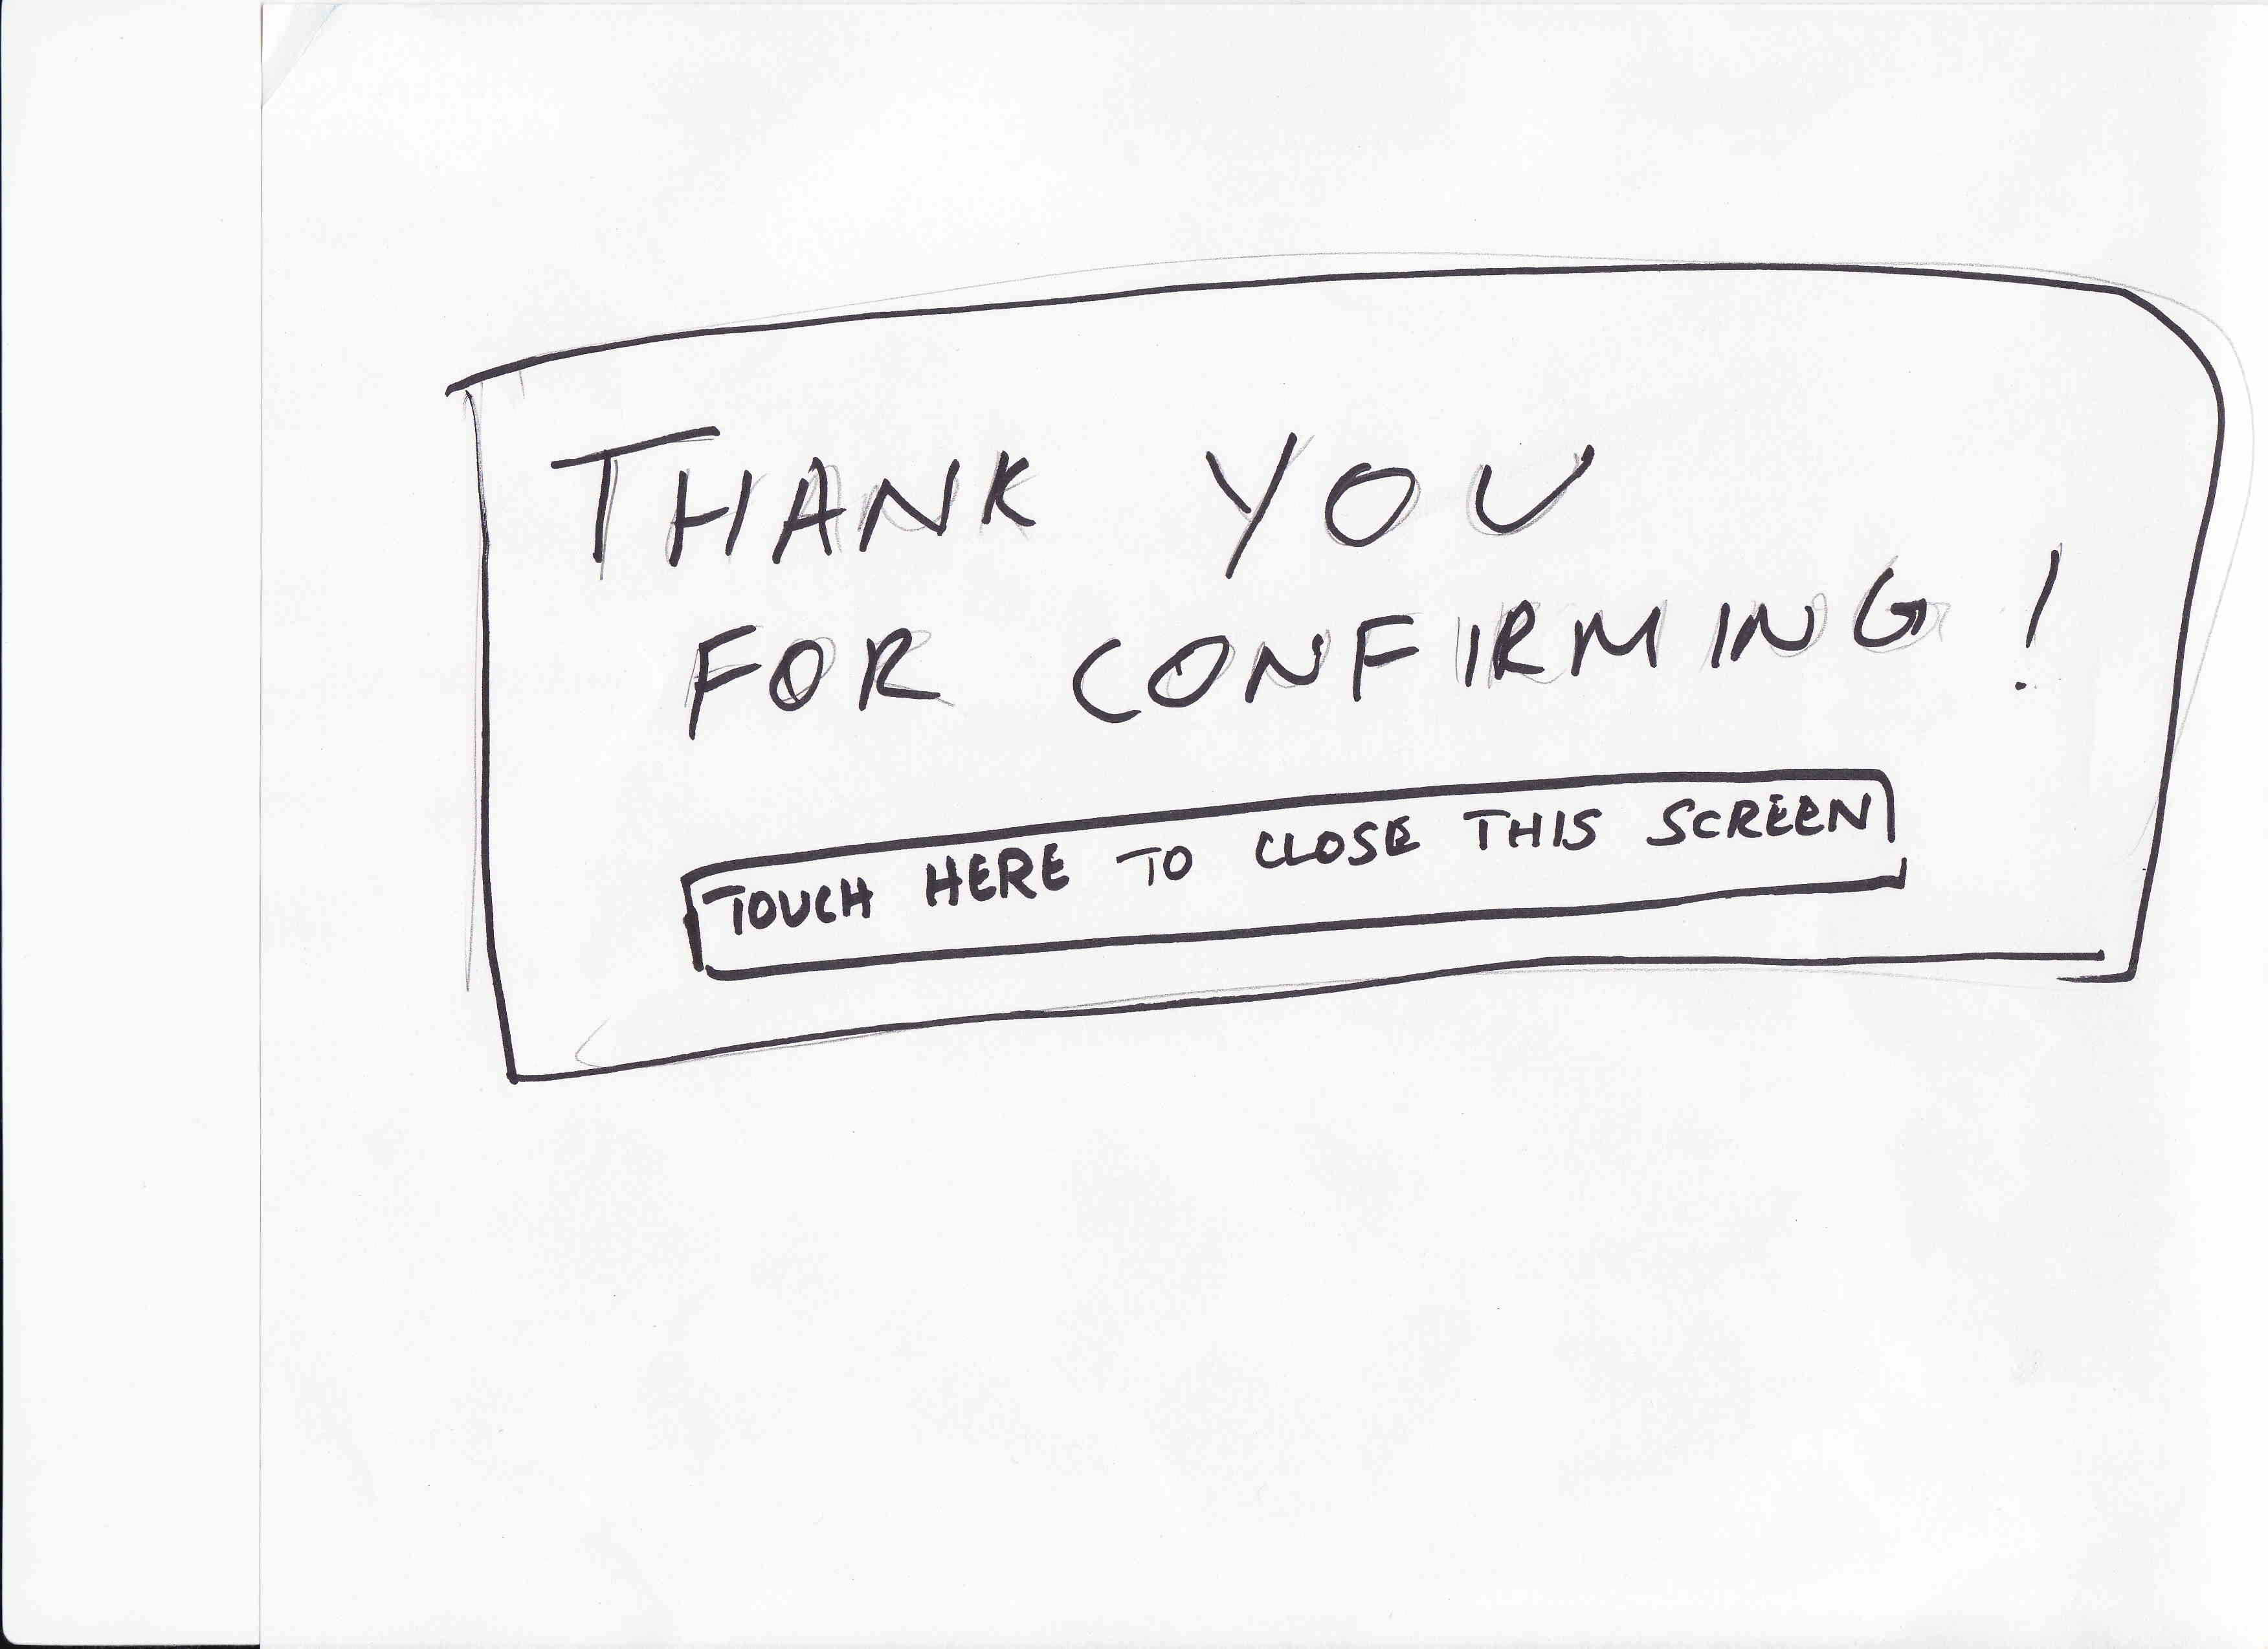 THANK YOU
FOR CONFIRMING!
TOUCH HERE TO CLOSE THIS SCREEN